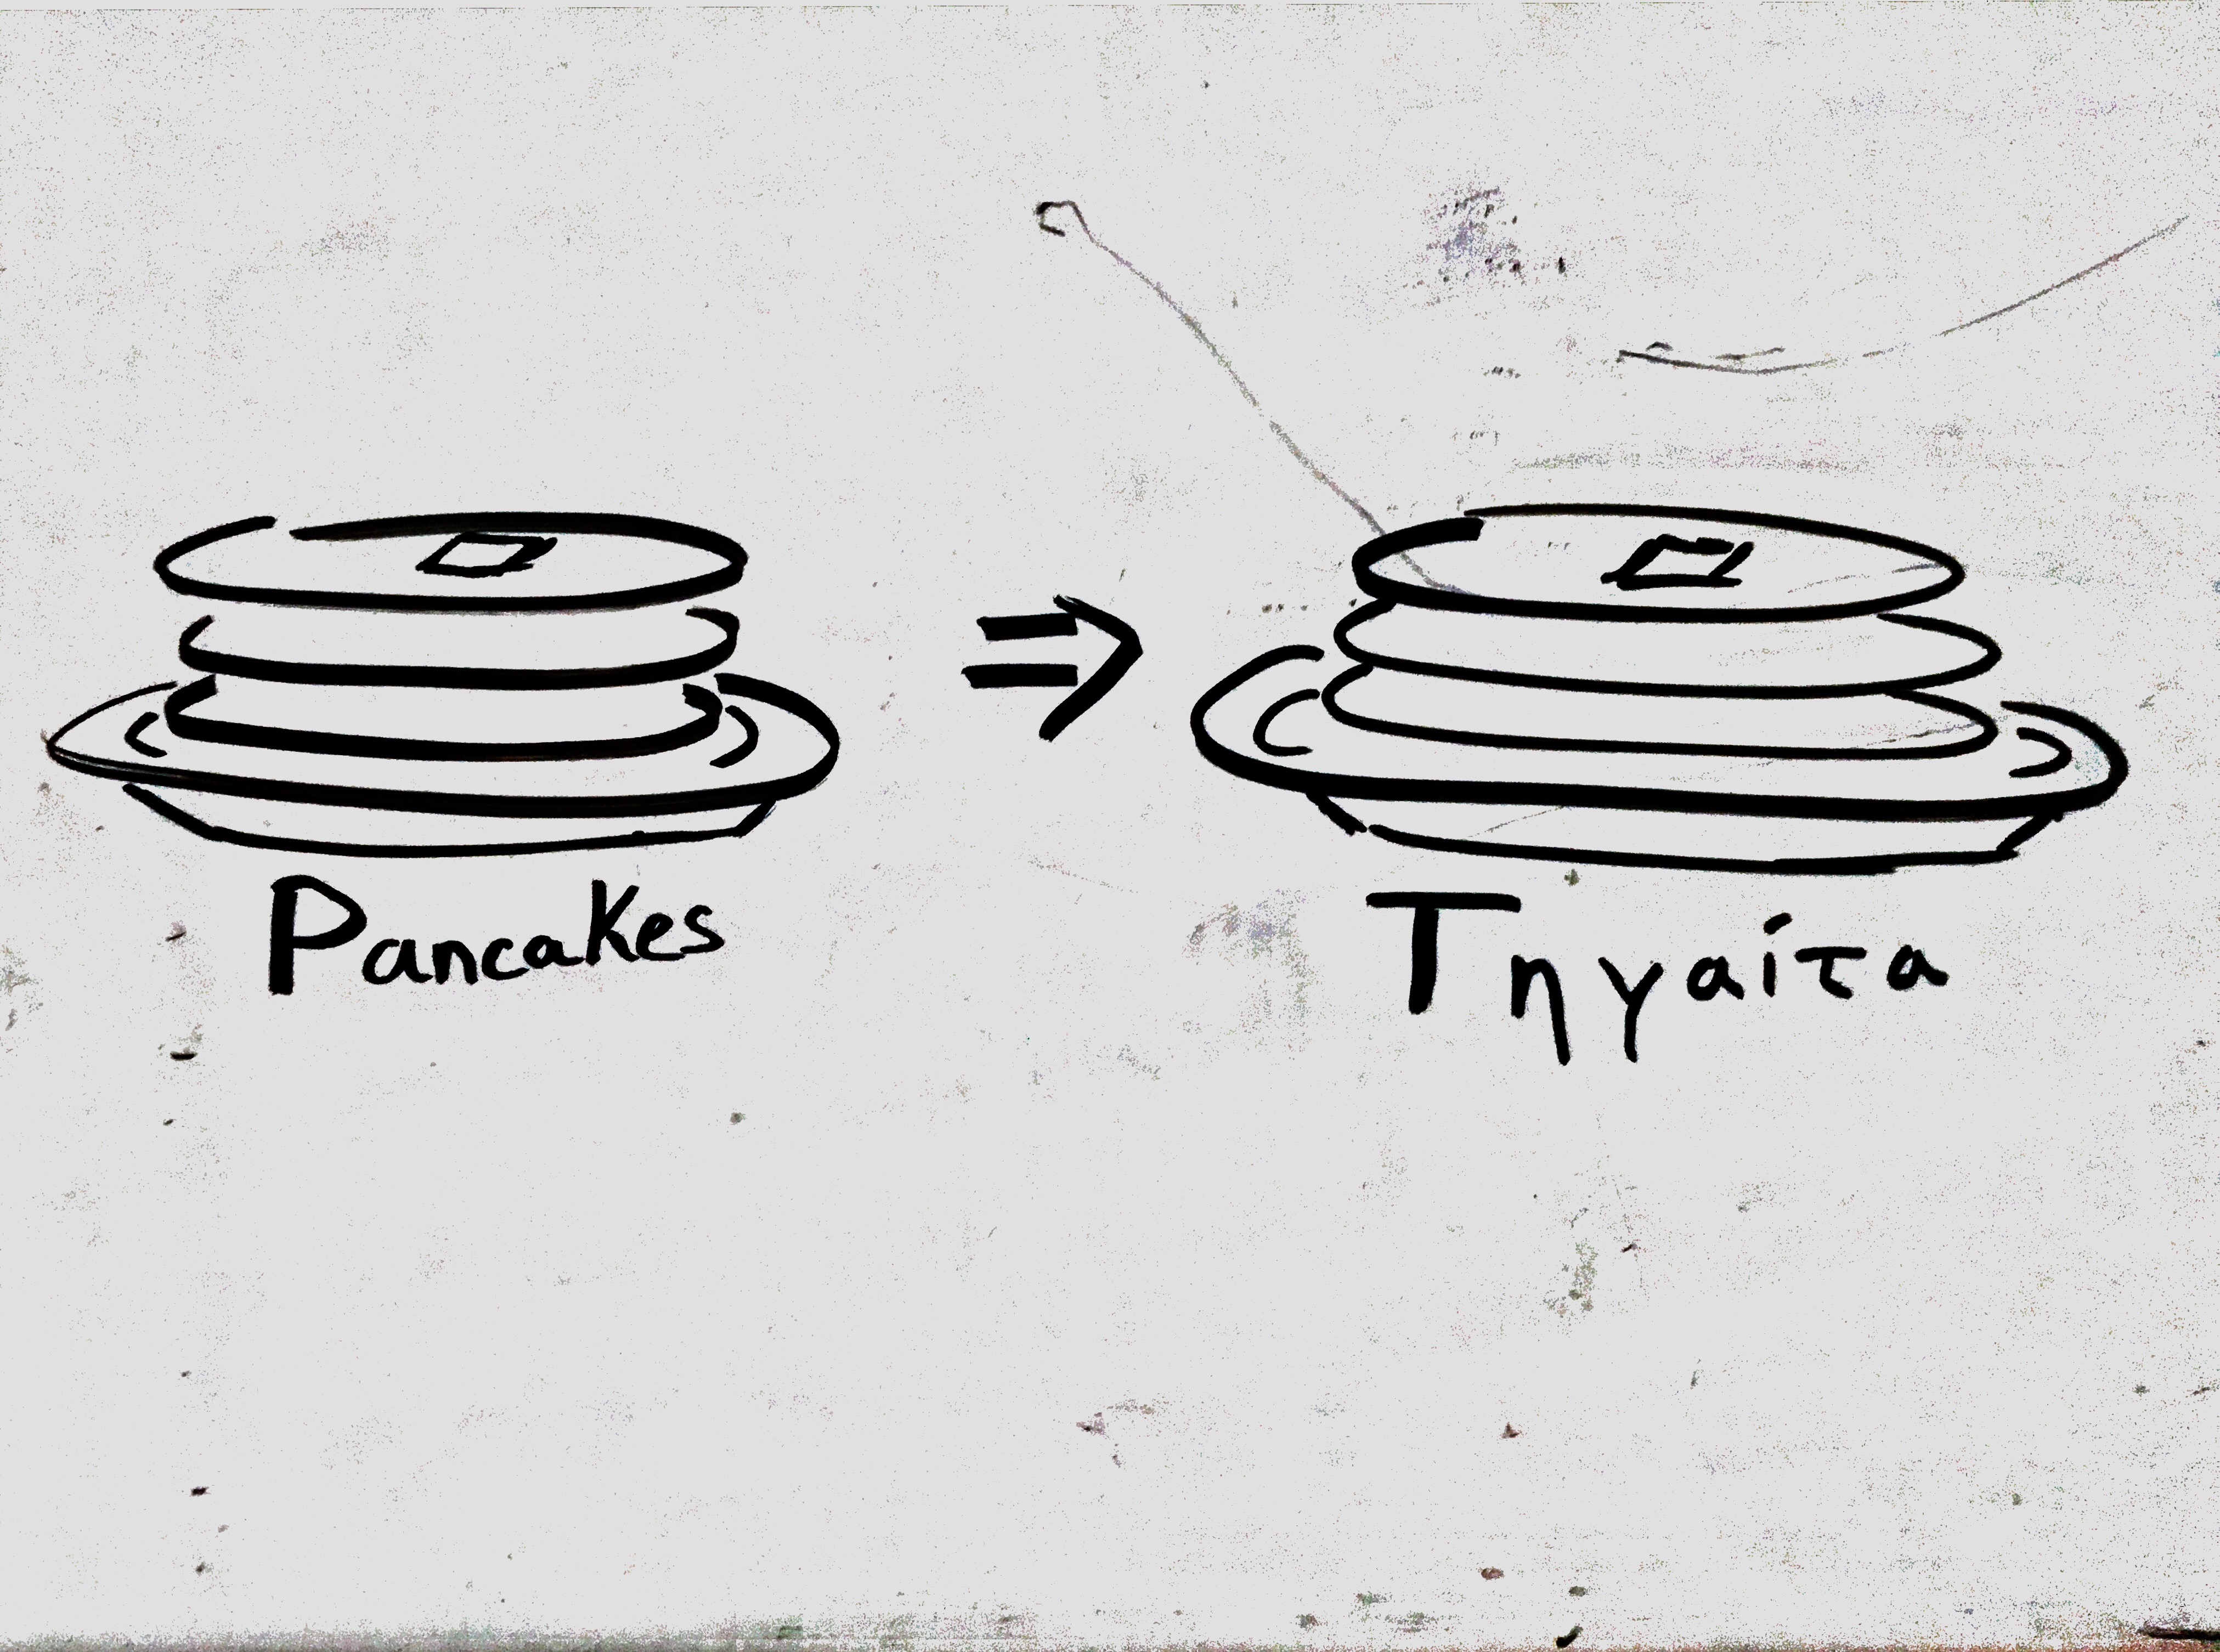 Pancakes
Τηγαίτα